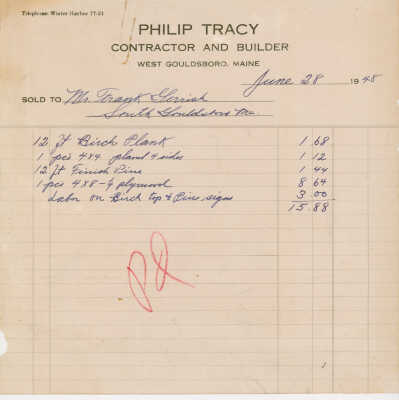 Telephone: Winter Harbor 77-21
PHILIP TRACY
CONTRACTOR AND BUILDER
WEST GOULDSBORO, MAINE
June 28 1948
SOLD TO Mr. Frank Gerrish
South Gouldsboro Me.
12 ft Birch Plank 1 68
1 pcs 4x4 planed 4 sides 1 12
12 ft Finish Pine 1 44
1 pcs 4x8-¼ plywood 8 64
Labor on Birch top & Pine signs 3 00
15.88
Pd.